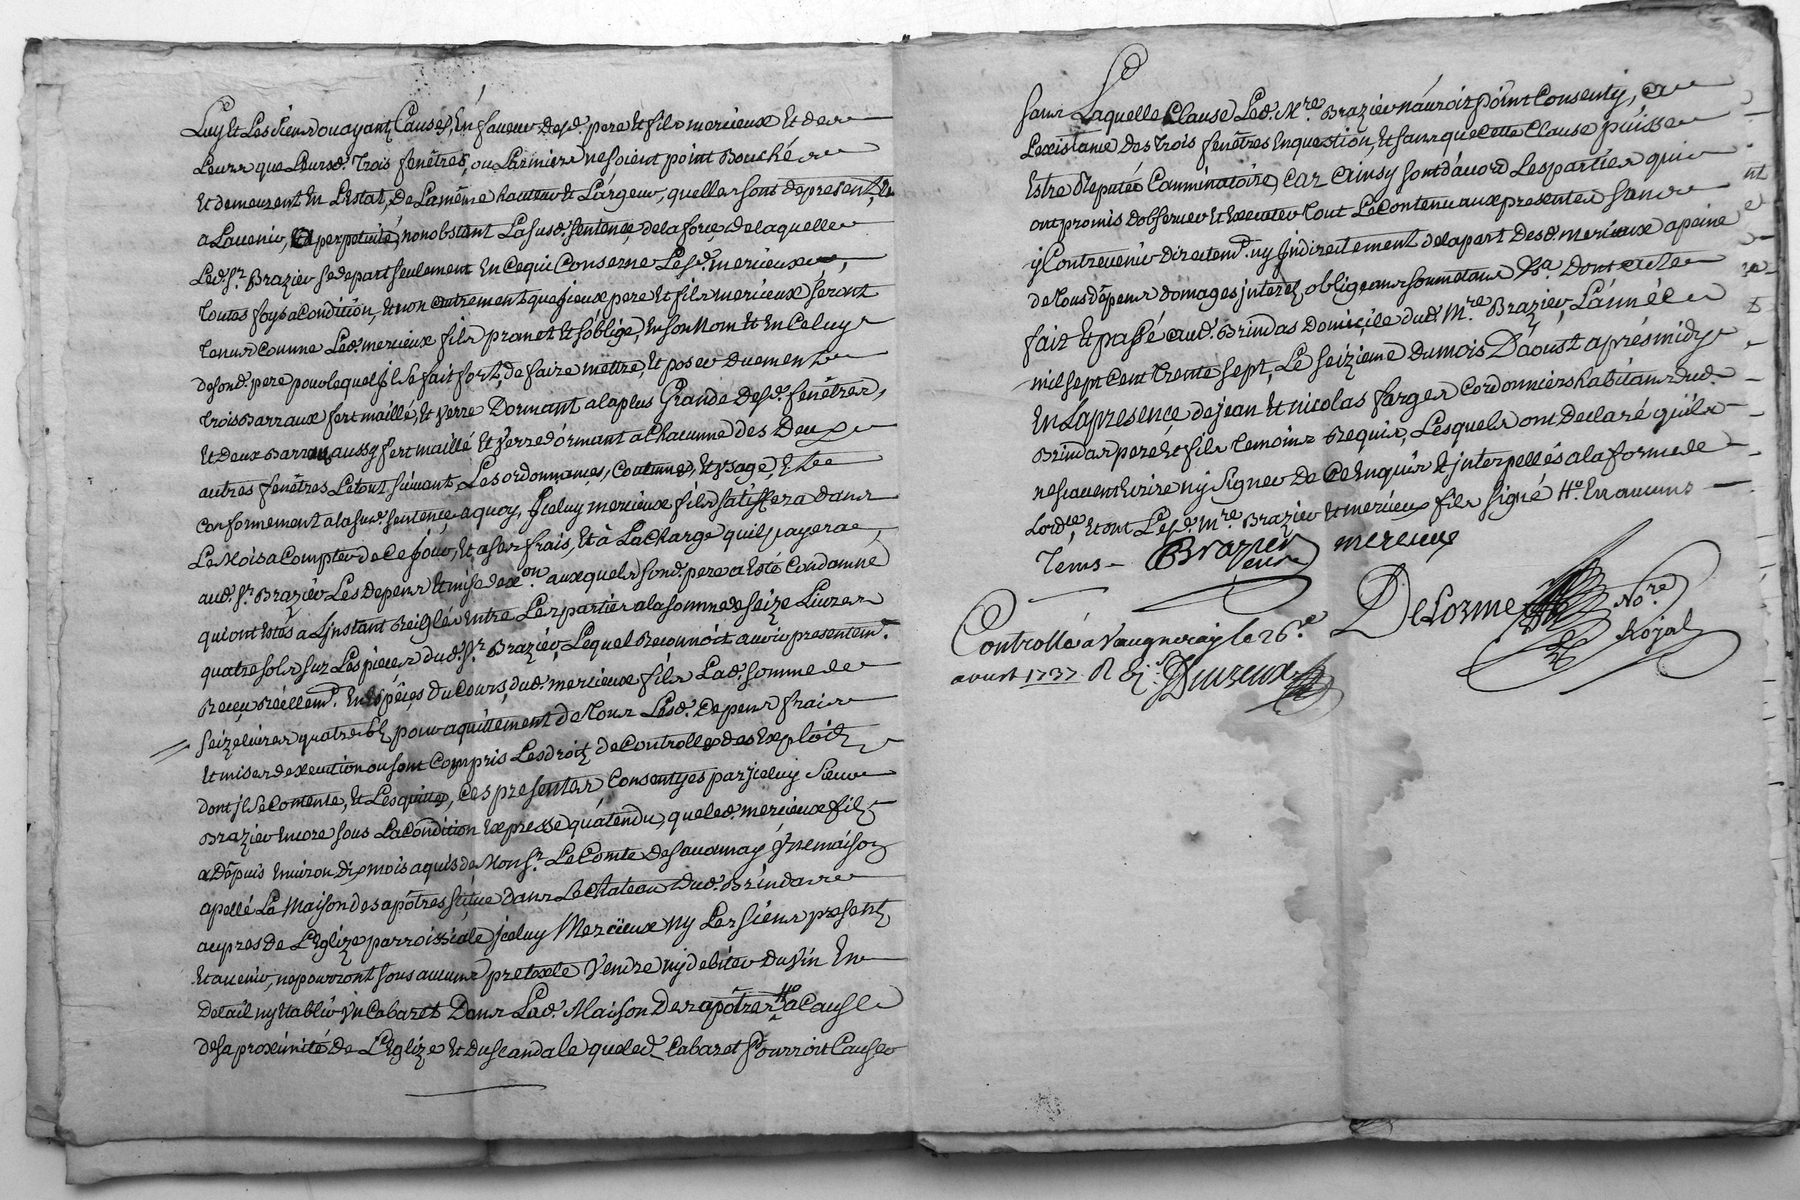 Luy et Les siens ou ayant Causes, En faveur desd. pere et fils mercieux et des
Leurs que Leursd. Trois fenêtres, ou Larmiers ne soient point Bouchées
et demeurent En L'estat, de La même hauteur et Largeur, quelles sont de present, et
a Lavenir, et a perpetuité, nonobstant La susd. sentence, de la force de laquelle
Led. Sr. Brazier se depart seulement En ce qui Conserne Lesd. mercieux,
Toutes foys a Condition, et non autrement que jceux pere et fils mercieux seront
Tenus comme Led. mercieux fils promet et s'oblige, En son Nom et En Celuy
de sond. pere pour lequel jl se fait fort, de faire mettre, et poser duement
Trois Barraux fert maillé, et verre Dormant a la plus Grande desd. fenêtres,
Et deux Barraux aussy fert maillé et verre dormant a Chacunne des Deux
autres fenêtres Le tout suivant Les ordonnances, Coutume, et usage, et
Conformement a la susd. sentence, a quoy, jceluy mercieux fils satisfera dans
Le Mois a Compter de Ce jour, et a ses frais, et à La Charge qu'il payera
aud. Sr. Brazier Les depens et mise dexon. auxquels sond. pere a Esté Condamné
qui ont Estés a L'jnstant Reiglés Entre Les parties a la somme de seize Livres
quatre sols sur Les pieces dud. Sr. Brazier, Lequel Reconnoit avoir presentemt.
Reçeu Réellemt. En Espèces du Cours, dud. mercieux fils Lad. somme de
seize livres quatre sols, pour aquittement de Tous Lesd. depens fraix
et mises dexecution ou sont Compris Les droits de Controlle des Exploits
dont jl se contente, et Les quitte, Ces presentes Consentyes par jceluy sieur
Brazier Encore sous La Condition Expresse qu'atendu, que led. mercieux fils
a Depuis Environ dix mois aquis de Monsr. Le Comte de Une maison
apellé La Maison des apôtres située dans Le Chateau dud. Brindas
aupres de L'Eglize parroissiale jceluy Mercieux ny Les siens presents,
Et avenir, ne pourront sous aucuns pretexte Vendre ny debiter du Vin En
Detail ny Etablir Un Cabaret Dans Lad. Maison des apôtres a Cause
de sa proximité De L'Eglize et du scandale que led. Cabaret pourroit Causer
sans Laquelle Clause Led. Mre. Brazier n'auroit point Consenty, a
L'existance des Trois fenêtres En question, et sans que cette Clause puisse
Estre Reputée Comminatoire, Car Ainsy sont d'acord Les parties qui
ont promis d'observer et Executer Tout Le Contenu aux presentes sans
y Contrevenir directemt. ny jndirectement de la part desd. mercieux a peine
de Tous Dépens domages jnterets, obligeans soumetans &a. Dont acte
fait et passé aud. Brindas Domicile dud. Mre. Brazier, L'année
mil sept Cent Trente sept, Le seizieme du mois D'aoust après midy
En La presence de jean et nicolas farges Cordonniers habitans dud.
Brindas pere et fils Temoins Requis, Lesquels ont Declaré qu'ils
ne scavent Ecrire ny signer De Ce Enquis et jnterpellés a la forme de
Lordce, et ont Lesd. Mre. Brazier et mercieux fils signé
Tems Brazier mercieux
Delorme No.re
Royal
Controllé a Vaugneray le 26e
aoust 1737 R